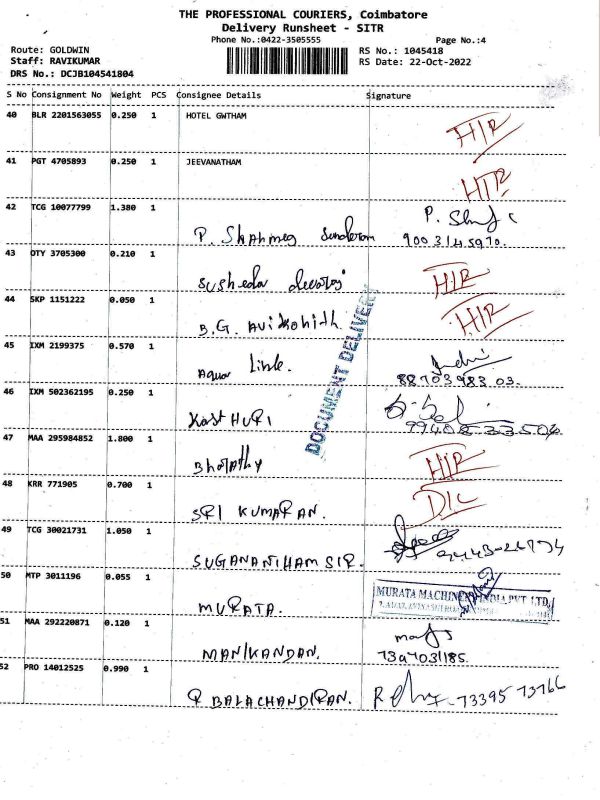 THE PROFESSIONAL COURIERS, Coimbatore
Delivery Runsheet - SITR
Phone No.:0422-3505555 Page No.:4
Route: GOLDWIN RS No.: 1045418
Staff: RAVIKUMAR RS Date: 22-Oct-2022
DRS No.: DCJB104541804
S No Consignment No Weight PCS Consignee Details Signature
40 BLR 2201563055 0.250 1 HOTEL GWTHAM
H/R
41 PGT 4705893 0.250 1 JEEVANATHAM
H/R
42 TCG 10077799 1.380 1
P.
43 OTY 3705300 0.210 1
H/R
44 SKP 1151222 0.050 1
B.G. H/R
45 IXM 2199375 0.570 1
Aqua
46 IXM 502362195 0.250 1
KastHURI
47 MAA 295984852 1.800 1
Bharathy H/R
48 KRR 771905 0.700 1
SRI KUMARAN. D/C
49 TCG 30021731 1.050 1
SUGANANTHAM SIR.
50 MTP 3011196 0.055 1
MURATA. MURATA MACHINERY INDIA PVT. LTD.
51 MAA 292220871 0.120 1
MANIKANDAN. 7397031185.
52 PRO 14012525 0.990 1
R BALACHANDIRAN. 73395 73766
DOCUMENT DELIVERY